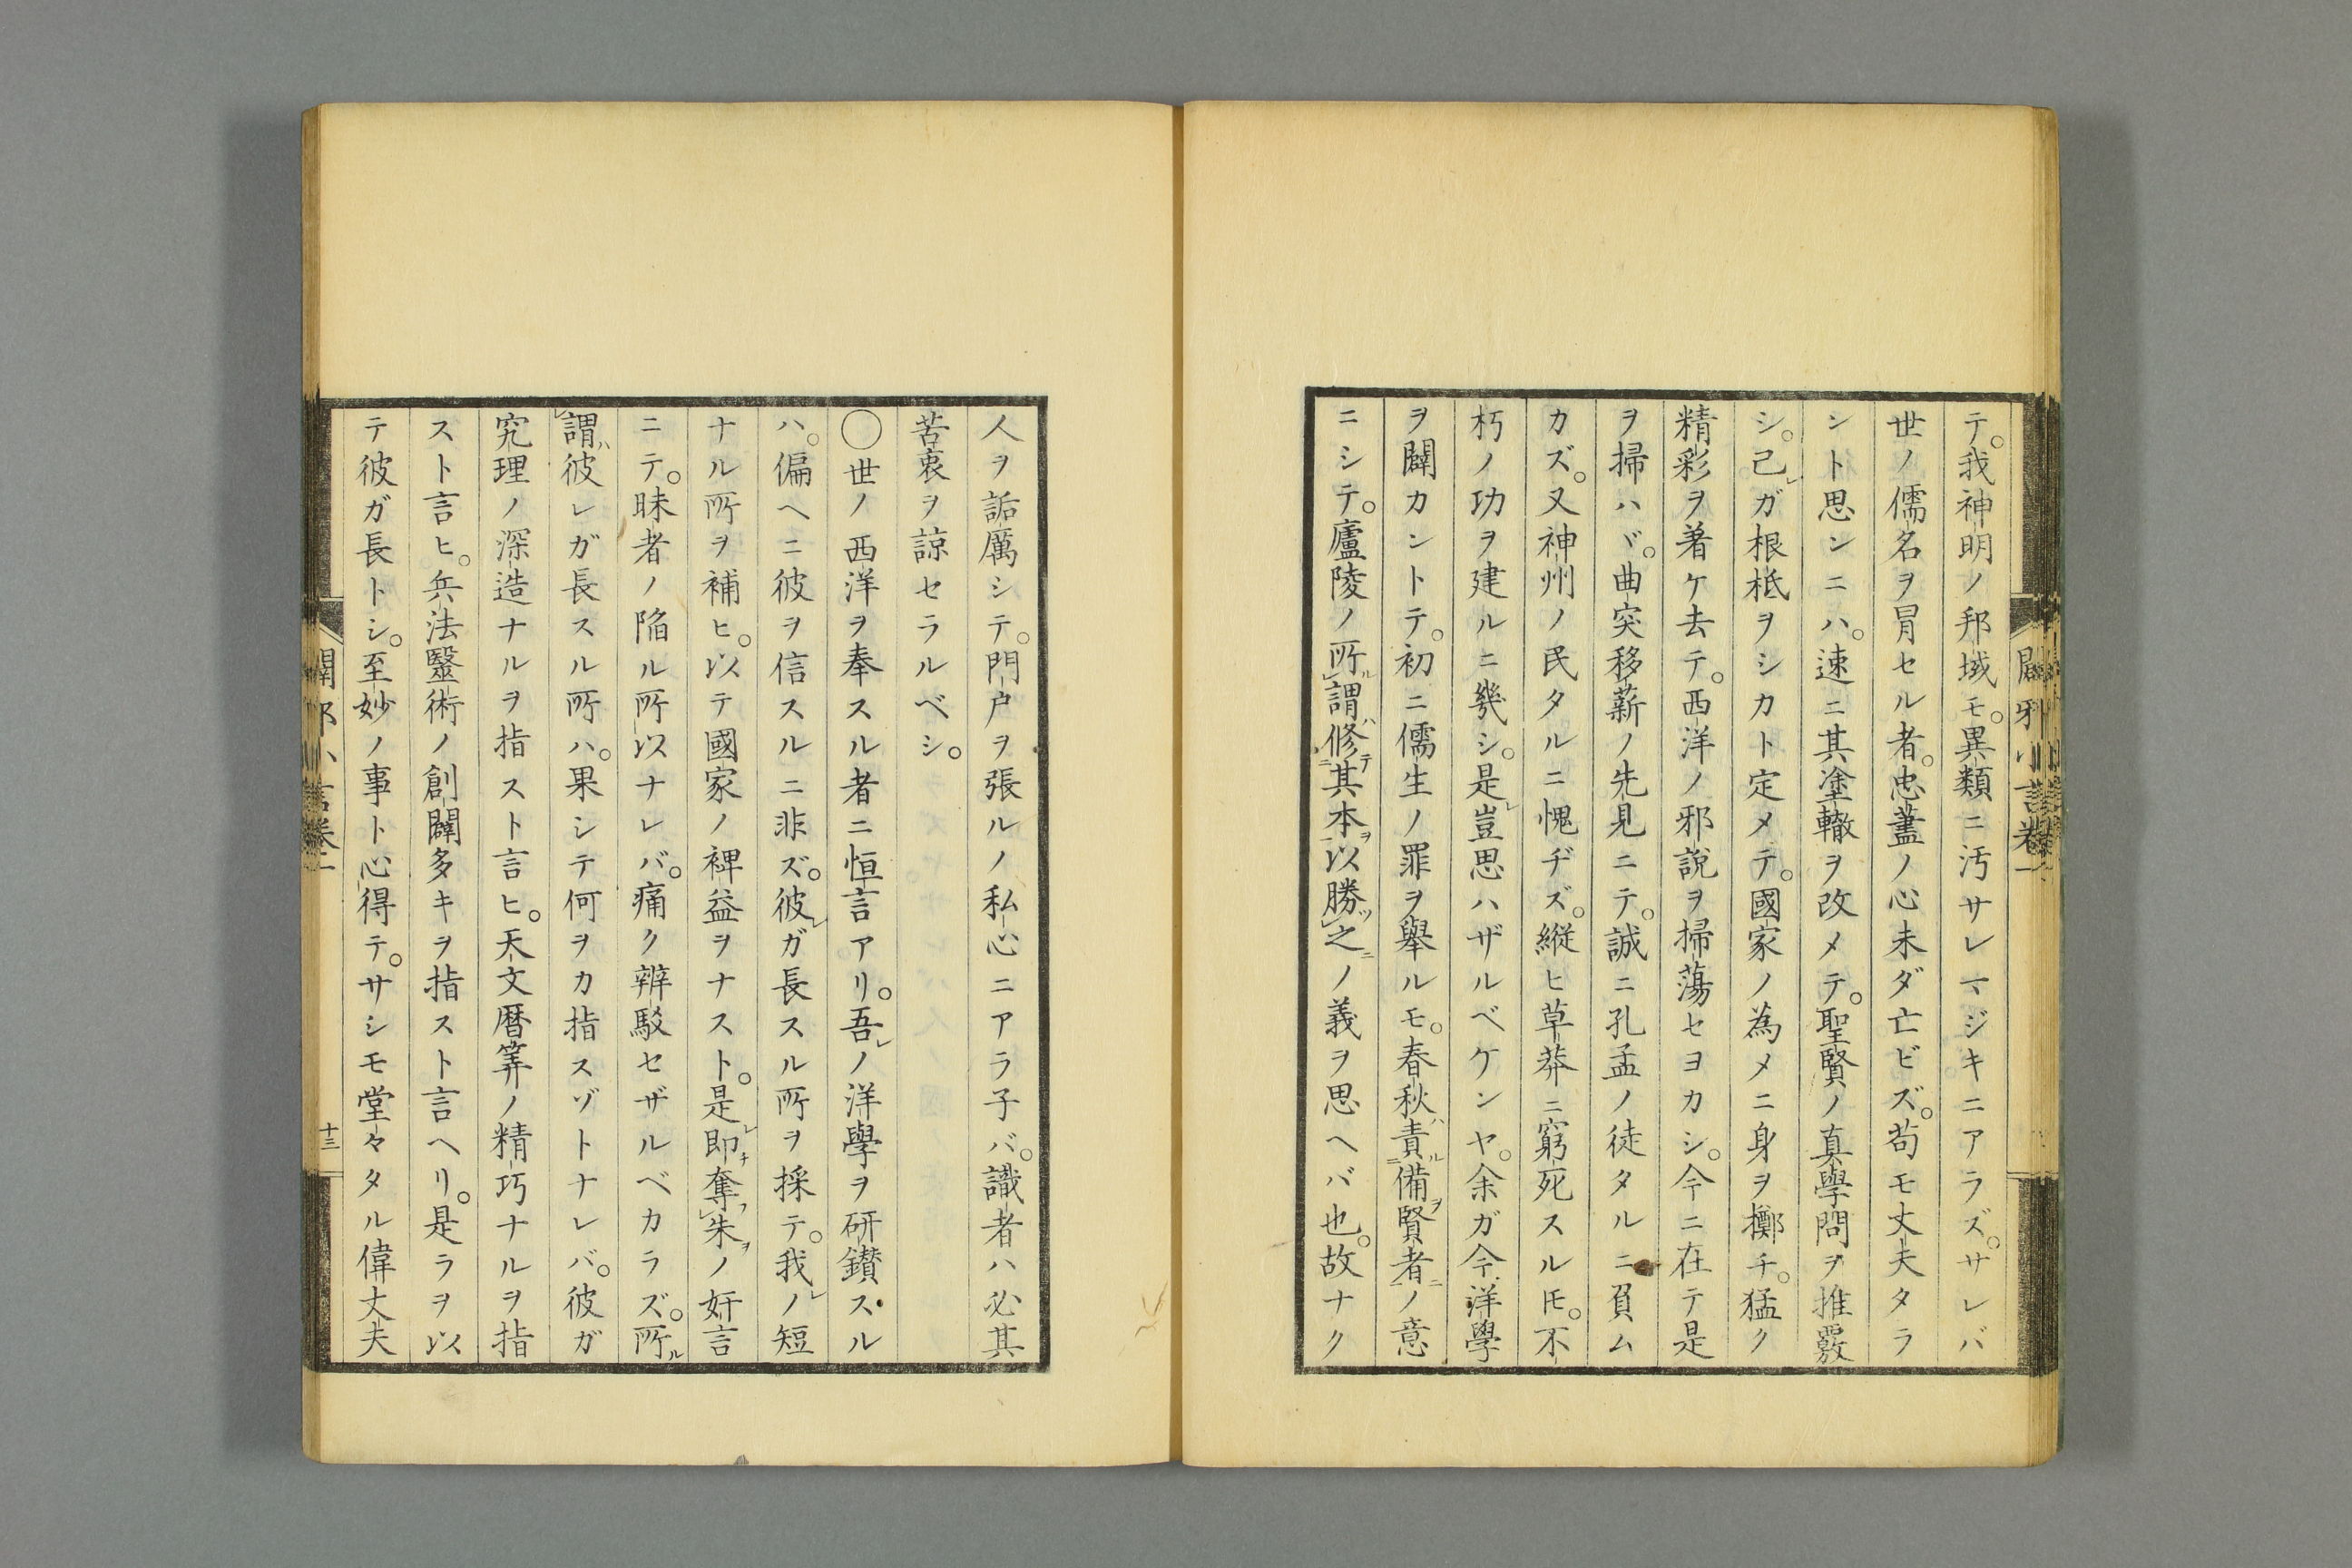 テ。我神明ノ邦域モ。異類ニ汚サレマジキニアラズ。サレバ
世ノ儒名ヲ冐セル者。忠藎ノ心未ダ亡ビズ。苟モ丈夫タラ
シト思ンニハ。速ニ其塗轍ヲ改メテ。聖賢ノ真學問ヲ推覈
シ。己レガ根柢ヲシカト定メテ。國家ノ為メニ身ヲ擲チ。猛ク
精彩ヲ著ケ去テ。西洋ノ邪說ヲ掃蕩セヨカシ。今ニ在テ是
ヲ掃ハヾ。曲突移薪ノ先見ニテ。誠ニ孔孟ノ徒タルニ負ム
カズ。又神州ノ民タルニ愧ヂズ。縦ヒ草莽ニ窮死スル𪜈。不
朽ノ功ヲ建ルニ幾シ。是レ豈思ハザルベケンヤ。余ガ今洋學
ヲ闢カントテ。初ニ儒生ノ罪ヲ舉ルモ。春秋ハ責ルニ備ヲ賢者ニノ意
ニシテ。廬陵ノ所ル謂ハ修テ其本ヲ以勝ツ之ニノ義ヲ思ヘバ也。故ナク
人ヲ詬厲シテ。門戸ヲ張ルノ私心ニアラ子バ。識者ハ必其
苦衷ヲ諒セラルベシ。
〇世ノ西洋ヲ奉スル者ニ恒言アリ。吾レノ洋學ヲ研鑚スル
ハ。偏ヘニ彼ヲ信スルニ非ズ。彼レガ長スル所ヲ採テ。我レノ短
ナル所ヲ補ヒ。以テ國家ノ裨益ヲナスト。是レ即チ奪フ朱ヲノ奸言
ニテ。昧者ノ陥ル所以ナレバ。痛ク辨駁セザルベカラズ。所ル
謂ハ彼レガ長スル所ハ。果シテ何ヲカ指スゾトナレバ。彼ガ
究理ノ深造ナルヲ指スト言ヒ。天文暦筭ノ精巧ナルヲ指
スト言ヒ。兵法毉術ノ創闢多キヲ指スト言ヘリ。是ラヲ以
テ彼ガ長トシ。至妙ノ事ト心得テ。サシモ堂々タル偉丈夫
十三